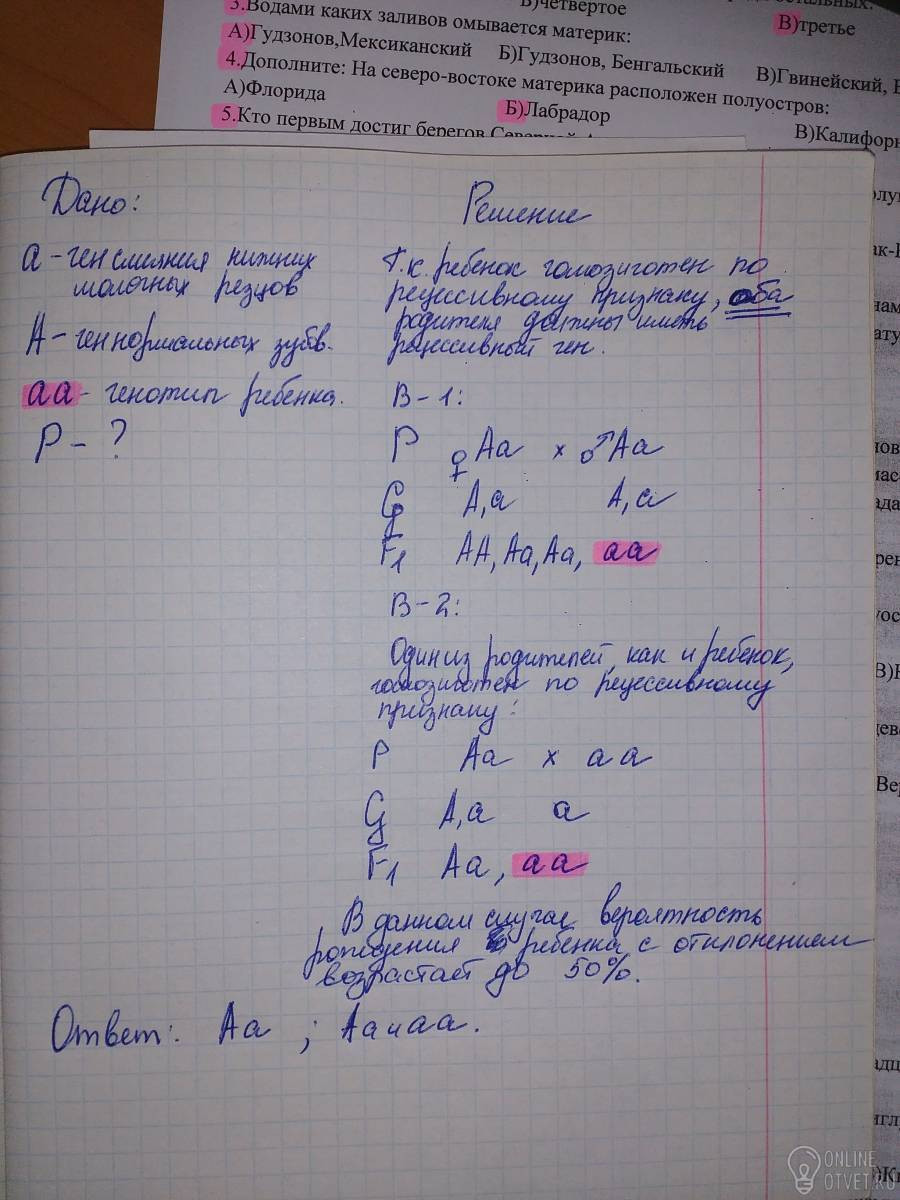 В)четвертое
остальных.
3.Водами каких заливов омывается материк:
В)третье
А)Гудзонов,Мексиканский Б)Гудзонов, Бенгальский В)Гвинейский,
4.Дополните: На северо-востоке материка расположен полуостров:
А)Флорида Б)Лабрадор В)Калифорн
5.Кто первым достиг берегов
Дано:
а - ген слияния нижних
молочных резцов
А - ген нормальных зубв.
аа - генотип ребенка.
Р - ?
Решение
Т.к. ребенок гомозиготен по
рецессивному признаку, оба
родителя должны иметь
рецессивный ген.
В-1:
Р ♀Аа × ♂Аа
G А,а А,а
F1 АА, Аа, Аа, аа
В-2:
Один из родителей, как и ребенок,
гомозиготен по рецессивному
признаку:
Р Аа × аа
G А,а а
F1 Аа, аа
В данном случае вероятность
рождения ребенка с отклонением
возрастает до 50%.
Ответ: Аа ; Аа и аа.
ONLINE
OTVET.RU